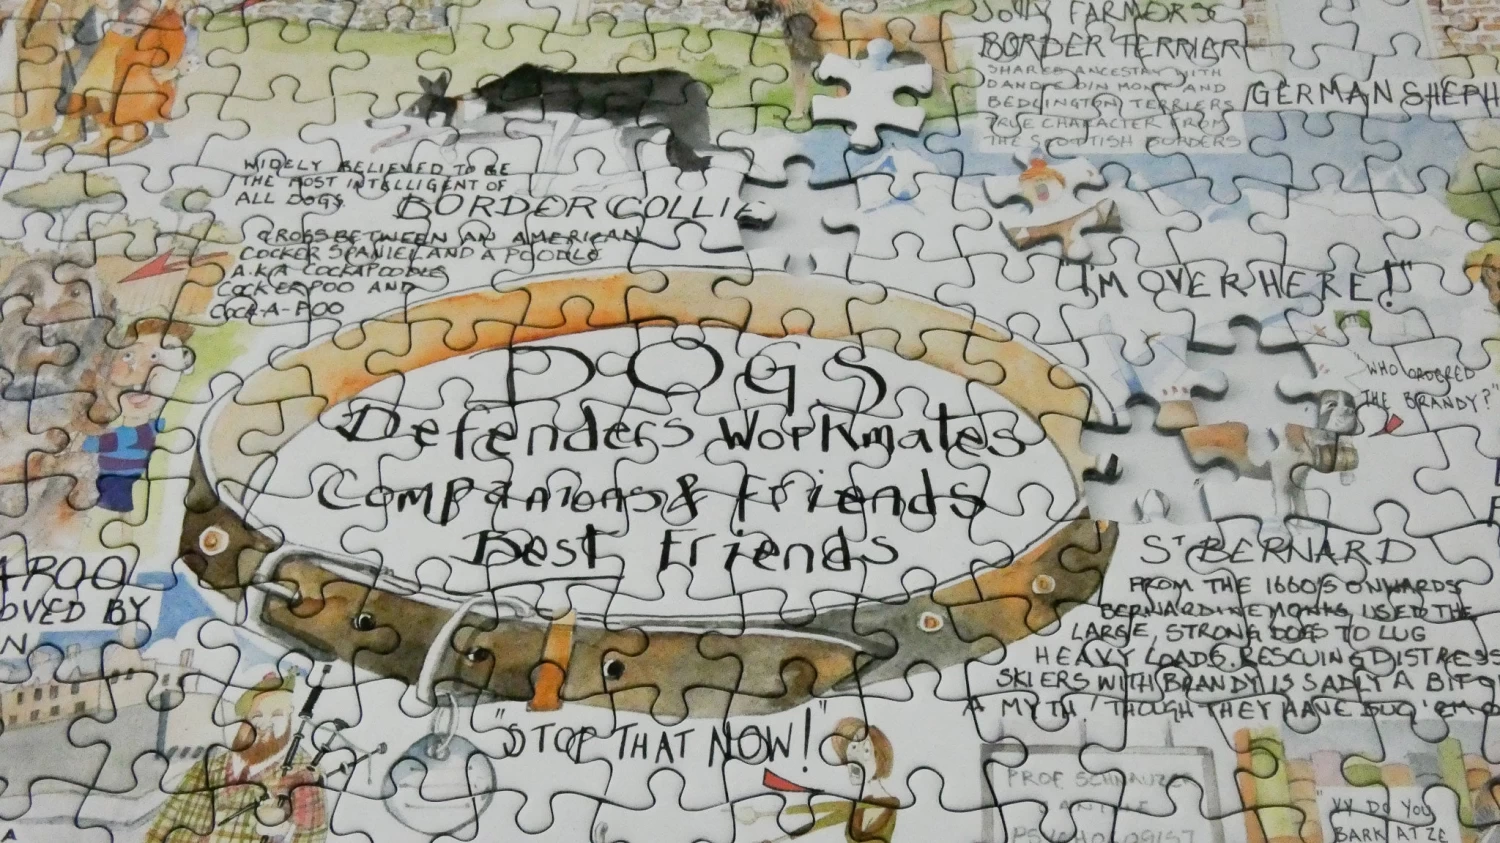 JOLLY FARMERS
BORDER TERRIER
SHARES ANCESTRY WITH
DANDIE DINMONT AND
BEDLINGTON TERRIERS
TRUE CHARACTER FROM
THE SCOTTISH BORDERS
GERMAN SHEPH
WIDELY BELIEVED TO BE
THE MOST INTELLIGENT OF
ALL DOGS
BORDER COLLIE
CROSS BETWEEN AN AMERICAN
COCKER SPANIEL AND A POODLE
A.K.A COCKAPOODLE
COCKERPOO AND
COCK-A-POO
"I'M OVER HERE!"
"WHO ORDERED
THE BRANDY?"
DOGS
Defenders Workmates
Companions & Friends
Best Friends
ST BERNARD
FROM THE 1660'S ONWARDS
BERNARDINE MONKS USED THE
LARGE, STRONG DOGS TO LUG
HEAVY LOADS. RESCUING DISTRESS
SKIERS WITH BRANDY IS SADLY A BIT O
A MYTH THOUGH THEY HAVE DUG 'EM O
AROO
OVED BY
N
"STOP THAT NOW!"
PROF SCHNAUZER
PSYCHOLOGIST
"VY DO YOU
BARK AT ZE
A